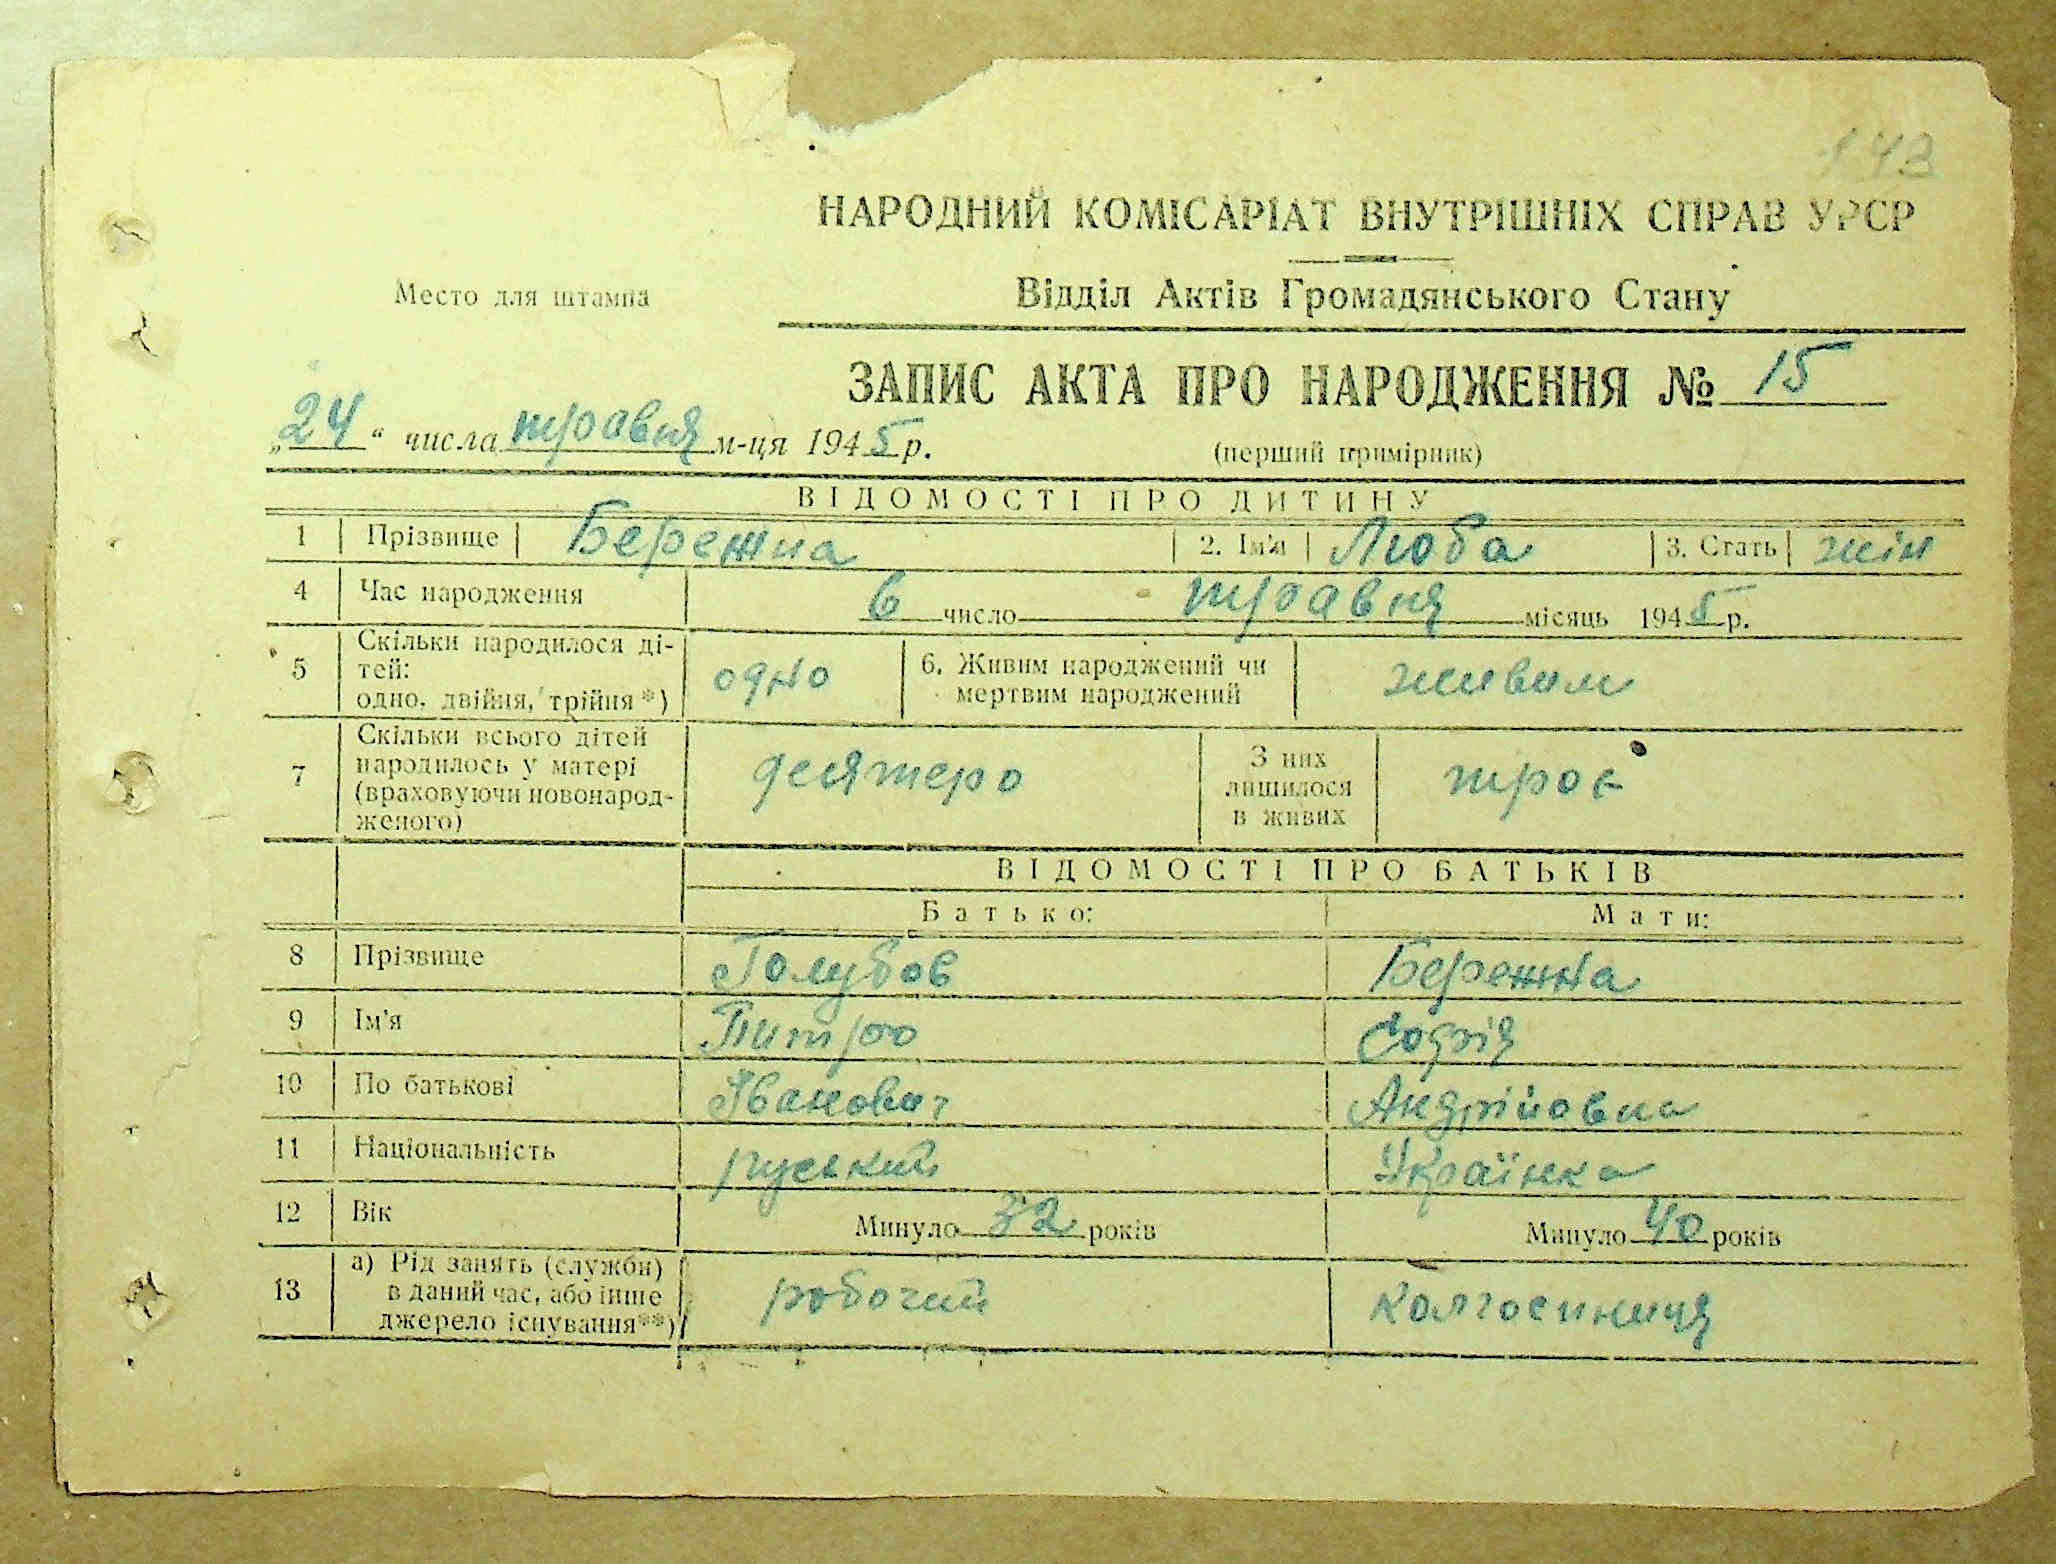 143
НАРОДНИЙ КОМІСАРІАТ ВНУТРІШНІХ СПРАВ УРСР
Место для штампа
Відділ Актів Громадянського Стану
ЗАПИС АКТА ПРО НАРОДЖЕННЯ № 15
„24“ числа травня м-ця 1945 р.
(перший примірник)
ВІДОМОСТІ ПРО ДИТИНУ
1 Прізвище Бережна 2. Ім'я Люба 3. Стать жін
4 Час народження 6 число травня місяць 1945 р.
5 Скільки народилося ді-
тей:
одно, двійня, трійня*) одно 6. Живим народжений чи
мертвим народжений живим
7 Скільки всього дітей
народилось у матері
(враховуючи новонарод-
женого) десятеро З них
лишилося
в живих троє
ВІДОМОСТІ ПРО БАТЬКІВ
Батько: Мати:
8 Прізвище Голубов Бережна
9 Ім'я Питро Софія
10 По батькові Іванович Андрійовна
11 Національність руський Українка
12 Вік Минуло 32 років Минуло 40 років
13 а) Рід занять (служби)
в даний час, або інше
джерело існування**) робочий колгоспниця